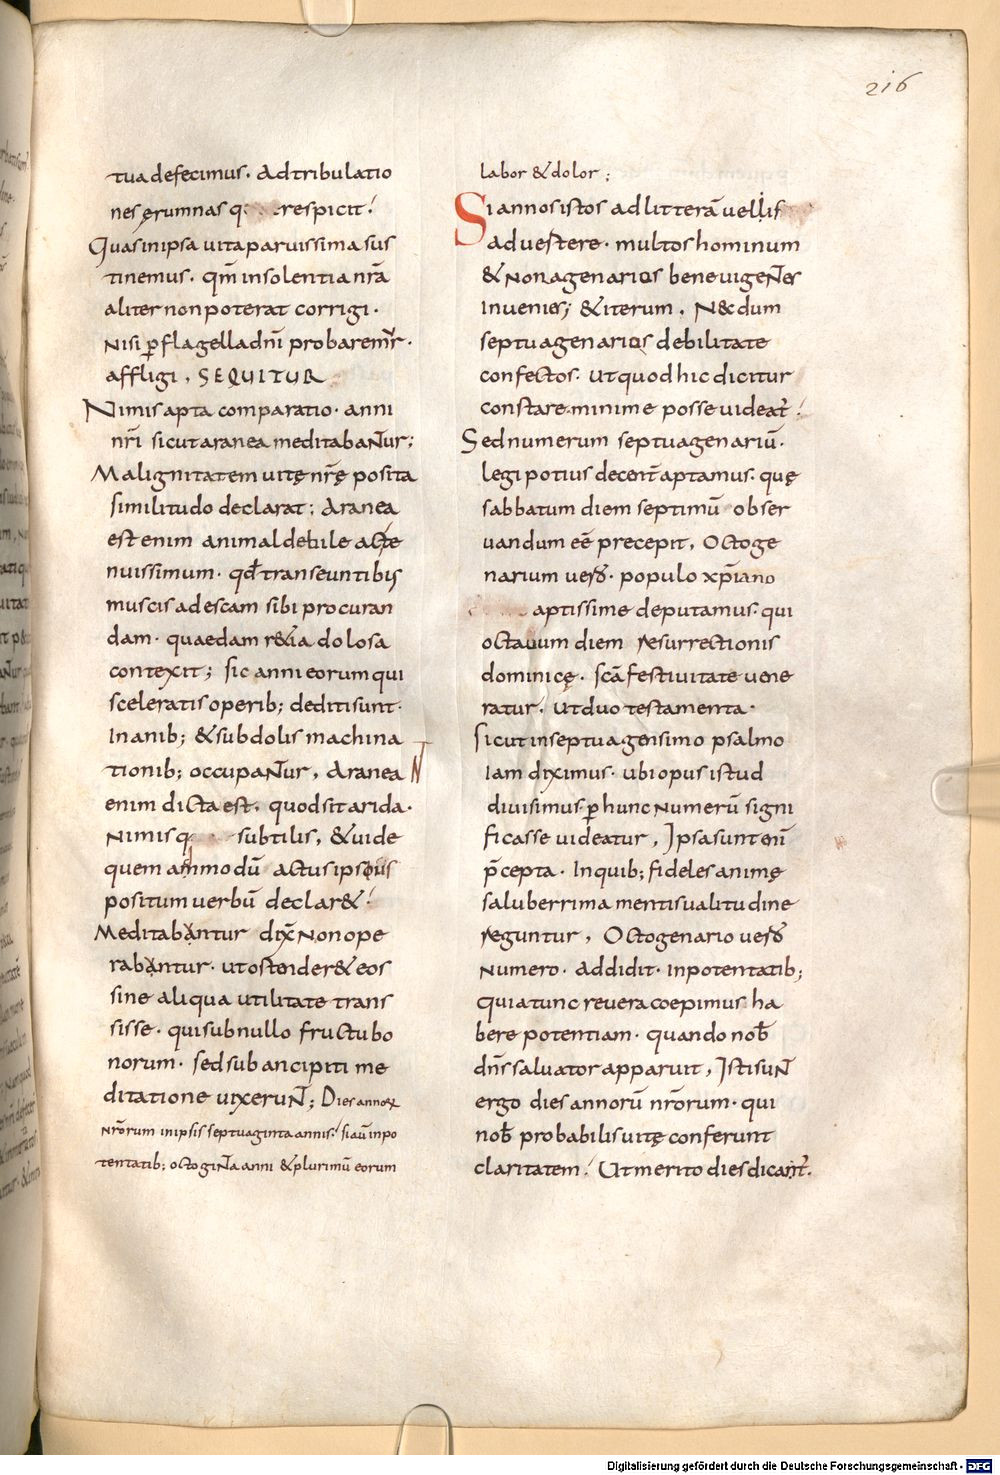 216
tua defecimus. Ad tribulatio
nes erumnas q: respicit!
Quas in ipsa uita paruissima sus
tinemus. qm̄ insolentia nr̄a
aliter non poterat corrigi.
Nisi p̄ flagella dn̄i probaremur.
affligi, SEQUITUR
Nimis apta comparatio. anni
nr̄i sicut aranea meditabantur;
Malignitatem uitę nr̄ę posita
similitudo declarat; Aranea
est enim animal debile acte
nuissimum. qđ transeuntibus
muscis ad escam sibi procuran
dam. quaedam r&ia dolosa
contexit; sic anni eorum qui
sceleratis operib; dediti sunt.
Inanib; & subdolis machina
tionib; occupantur, Aranea
enim dicta est. quod sit arida.
Nimis q subtilis, & uide
quem ammodū actus ipsius
positum uerbū declar&!
Meditabantur dix̄ Non ope
rabantur. ut ostender& eos
sine aliqua utilitate trans
sisse. qui sub nullo fructu bo
norum. sed sub ancipiti me
ditatione uixerunt; Dies annoꝝ
nr̄orum in ipsis septuaginta annis! si aū in po
tentatib; octoginta anni & plurimū eorum
labor & dolor;
Si annos istos ad litterā uellis
aduertere. multos hominum
& Nonagenarios bene uigentes
Inuenies; & iterum, Necdum
septuagenarios debilitate
confectos. ut quod hic dicitur
constare. minime posse uideat̄!
Sed numerum septuagenariū.
legi potius decent aptamus. quę
sabbatum diem septimū obser
uandum eē precepit, Octoge
narium uero. populo xp̄iano
aptissime deputamus. qui
octauum diem resurrectionis
dominicę. scā festiuitate uene
ratur. Ut duo testamenta.
Sicut in septuagensimo psalmo
Iam diximus. ubi opus istud
diuisimus. p̄ hunc Numerū signi
ficasse uideatur, Ipsa sunt enī
p̄cepta. In quib; fideles animę
saluberrima mentis ualitudine
reguntur, Octogenario uero
Numero. addidit. In potentatib;
quia tunc reuera coepimus ha
bere potentiam. quando nob̄
dn̄s saluator apparuit, Isti sunt
ergo dies annorū nr̄orum. qui
nob̄ probabilis uitę conferunt
claritatem! Ut merito dies dicant̄.
Digitalisierung gefördert durch die Deutsche Forschungsgemeinschaft - DFG